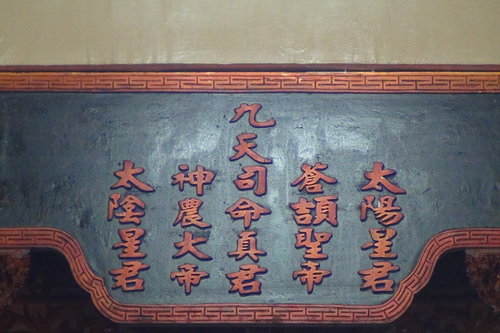 太陽星君
蒼頡聖帝
九天司命真君
神農大帝
太陰星君